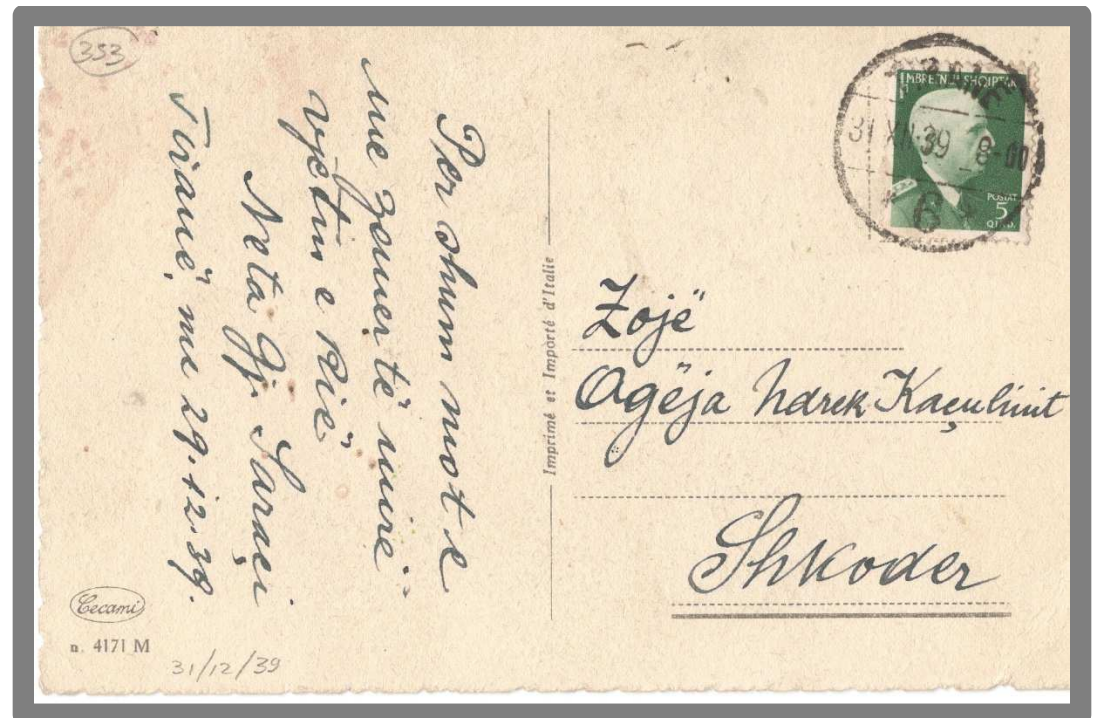 353
Për shum mot e
me zemer të mirë
vjetin e Rië
Neta Gj. Saraçi
Tiranë, me 29.12.39.
Cecami
n. 4171 M
31/12/39
Imprimé et Importé d'Italie
MBRETNIJA SHQIPTARE
31 XII 39 8-00
6
POSTAT
5
QIND.
Zojë
Agëja Ndrek Kaçulinit
Shkoder